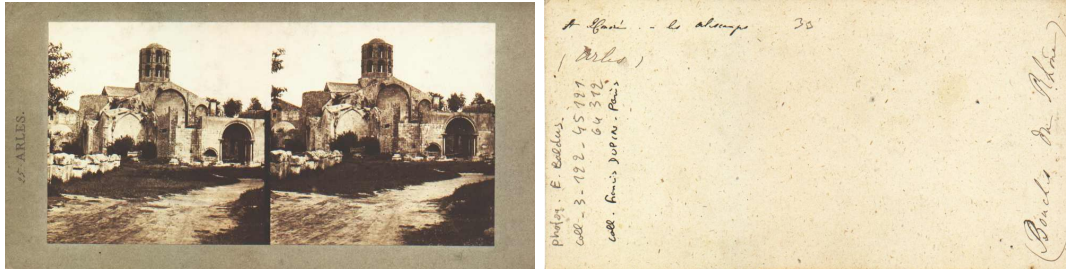 15 ARLES.
les alyscamps 33
(Arles)
photog. E. Baldus.
coll - 3 - 122 - 45 121
64 312
coll. Francis DUPIN - Paris
(Bouches du Rhône)